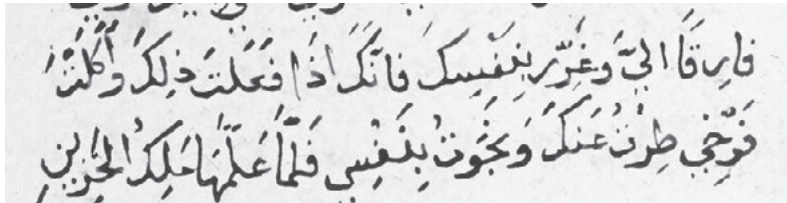 فارقَا اليَّ وَغَرِّر بِنَفْسِكَ فَانَّكَ اذَا فَعَلتَ ذلِكَ وَاَكَلتَ
فَرّخي طِرْتُ عَنكَ وَنَجَوتُ بِنَفْسِي فَلَمَّا عَلَّمَهَا مَلِكُ الحَزِينِ